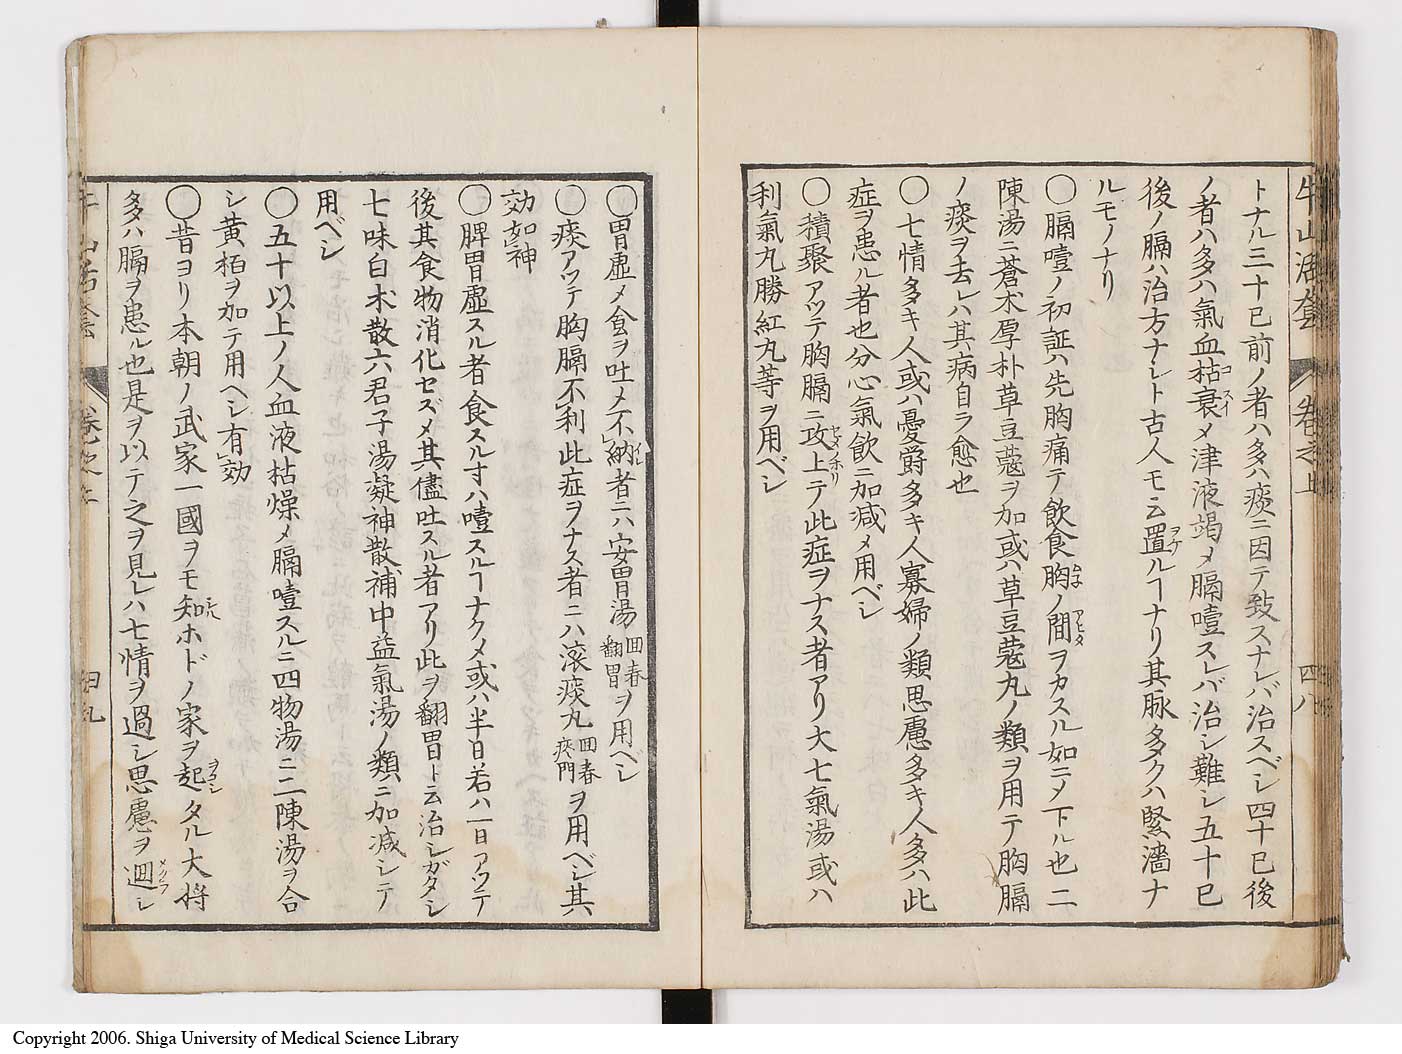 牛山活套 卷之上 四八
トナル三十已前ノ者ハ多ハ痰ニ因テ致スナレバ治スベシ四十已後
ノ者ハ多ハ氣血枯衰コスイメ津液竭メ膈噎スレバ治シ難シ五十已
後ノ膈ハ治方ナシト古人モ云置ヲケルヿナリ其脉多クハ緊濇ナ
ルモノナリ
〇膈噎ノ初証ハ先胸痛テ飲食胸ムネノ間アヒダヲカスル如ニメ下ル也二
陳湯ニ蒼朮厚朴草豆蔻ヲ加或ハ草豆蔻丸ノ類ヲ用テ胸膈
ノ痰ヲ去レハ其病自ラ愈也
〇七情多キ人或ハ憂爵多キ人寡婦ノ類思慮多キ人多ハ此
症ヲ患ル者也分心氣飲ニ加減メ用ベシ
〇積聚アツテ胸膈ニ攻上セメノホリテ此症ヲナス者アリ大七氣湯或ハ
利氣丸勝紅丸等ヲ用ベシ
〇胃虚メ食ヲ吐メ不納イレ者ニハ安胃湯回春翻胃ヲ用ベシ
〇痰アツテ胸膈不利此症ヲナス者ニハ滚痰丸回春痰門ヲ用ベシ其
効如神
〇脾胃虚スル者食スル寸ハ噎スルヿナクメ或ハ半日若ハ一日アツテ
後其食物消化セズメ其儘吐スル者アリ此ヲ翻胃ト云治シガタシ
七味白朮散六君子湯凝神散補中益氣湯ノ類ニ加减シテ
用ベシ
〇五十以上ノ人血液枯燥メ膈噎スルニ四物湯ニ二陳湯ヲ合
シ黄栢ヲ加テ用ヘシ有効
〇昔ヨリ本朝ノ武家一國ヲモ知ホドノ家ヲ起ヲコシタル大将
多ハ膈ヲ患ル也是ヲ以テ之ヲ見レハ七情ヲ過シ思慮ヲ廻メグラシ
牛山活套 卷之上 四九
Copyright 2006. Shiga University of Medical Science Library